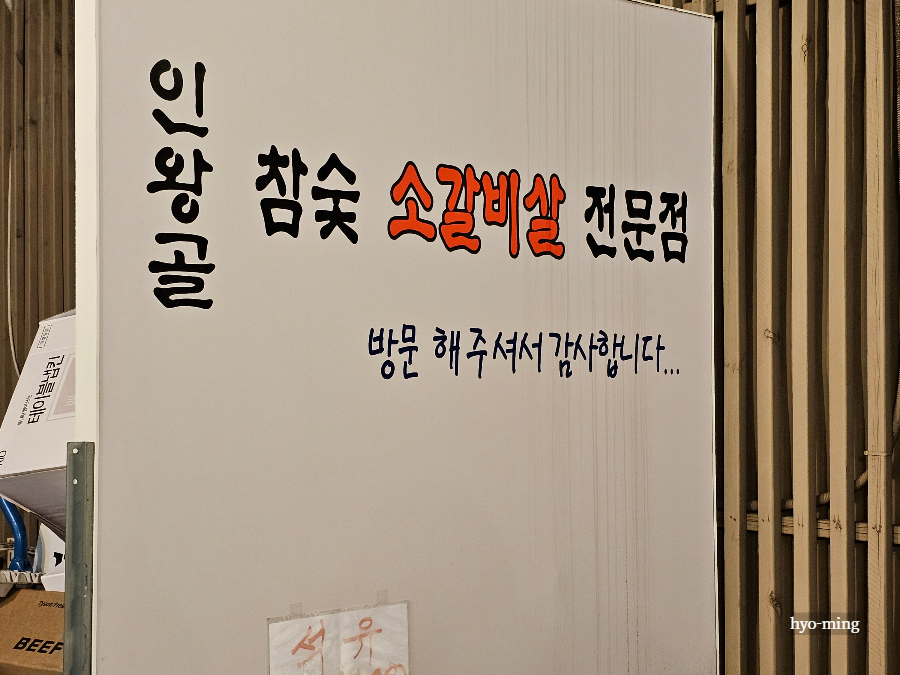 인왕골
참숯 소갈비살 전문점
방문 해주셔서 감사합니다...
테이블냅킨
BEEF
석유
hyo-ming